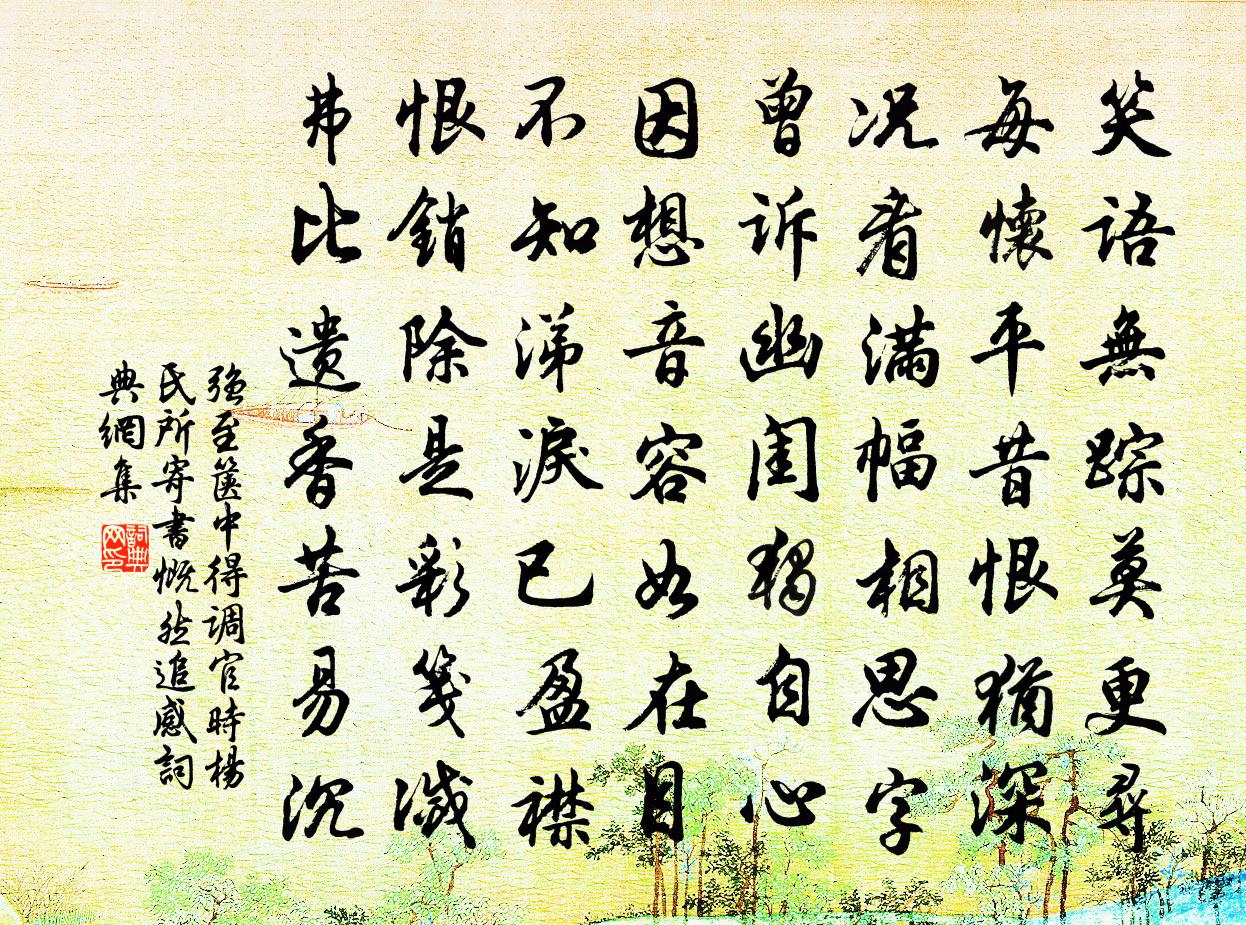 笑語無踪莫更尋
每懷平昔恨猶深
况看滿幅相思字
曾訴幽閨獨自心
因想音容如在目
不知涕淚已盈襟
恨銷除是彩箋滅
弗比遺香苦易沉
強至篋中得調官時楊
氏所寄書慨然追感詞
典網集
詞典
网印